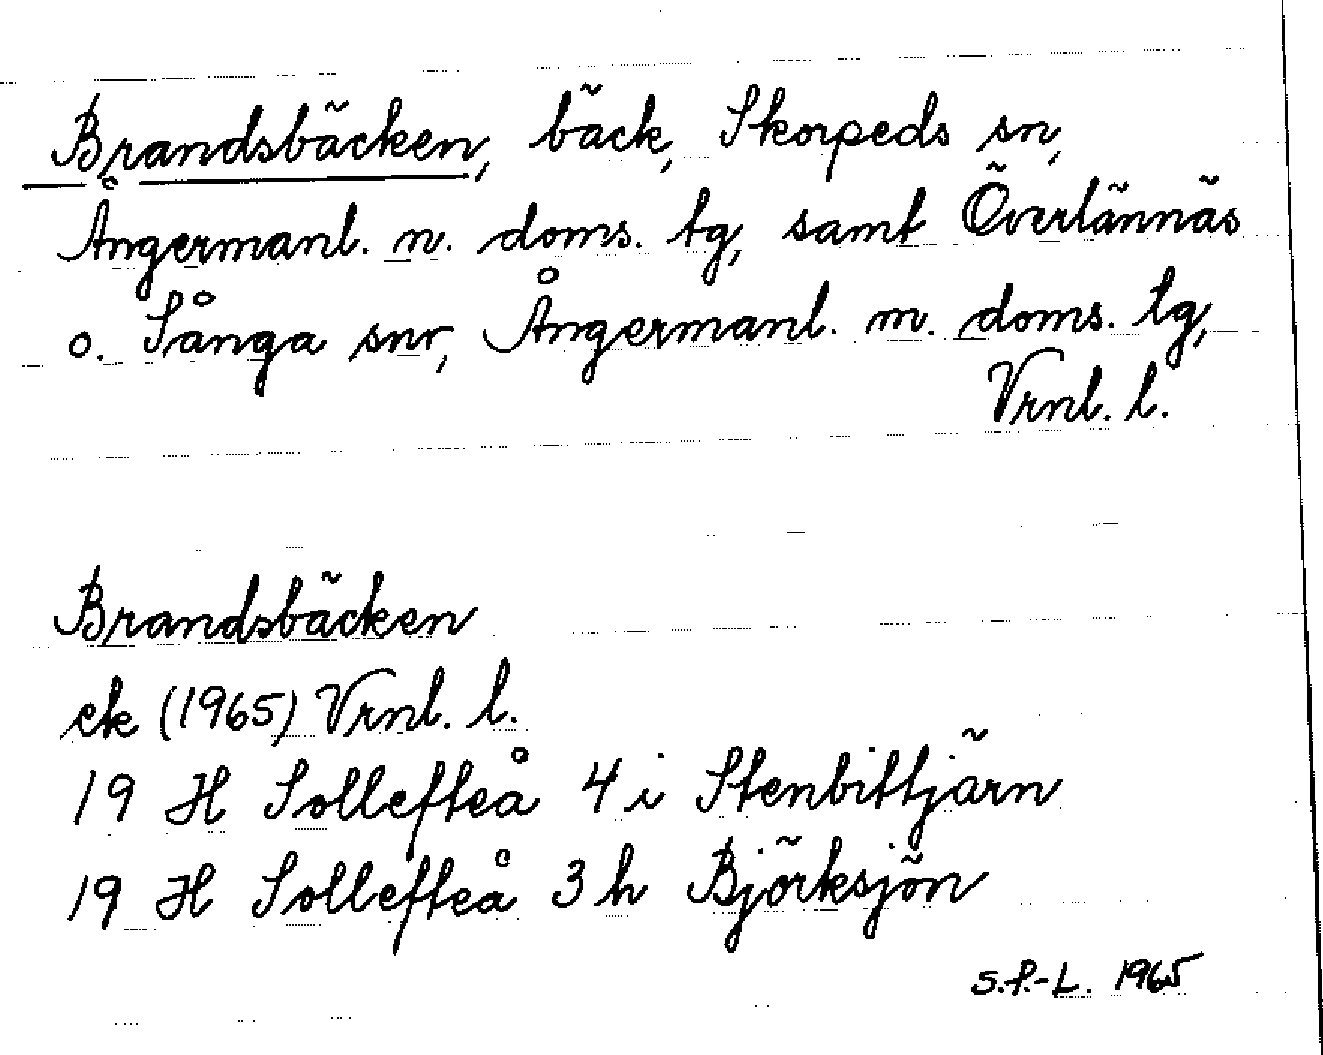 Brandsbäcken, bäck, Skorpeds sn,
Ångermanl. n. doms. tg, samt Överlännäs
o. Sånga snr, Ångermanl. m. doms. tg,
Vrnl. l.
Brandsbäcken
ek (1965) Vrnl. l.
19 H Sollefteå 4 i Stenbittjärn
19 H Sollefteå 3 h Björksjön
S.P.-L. 1965